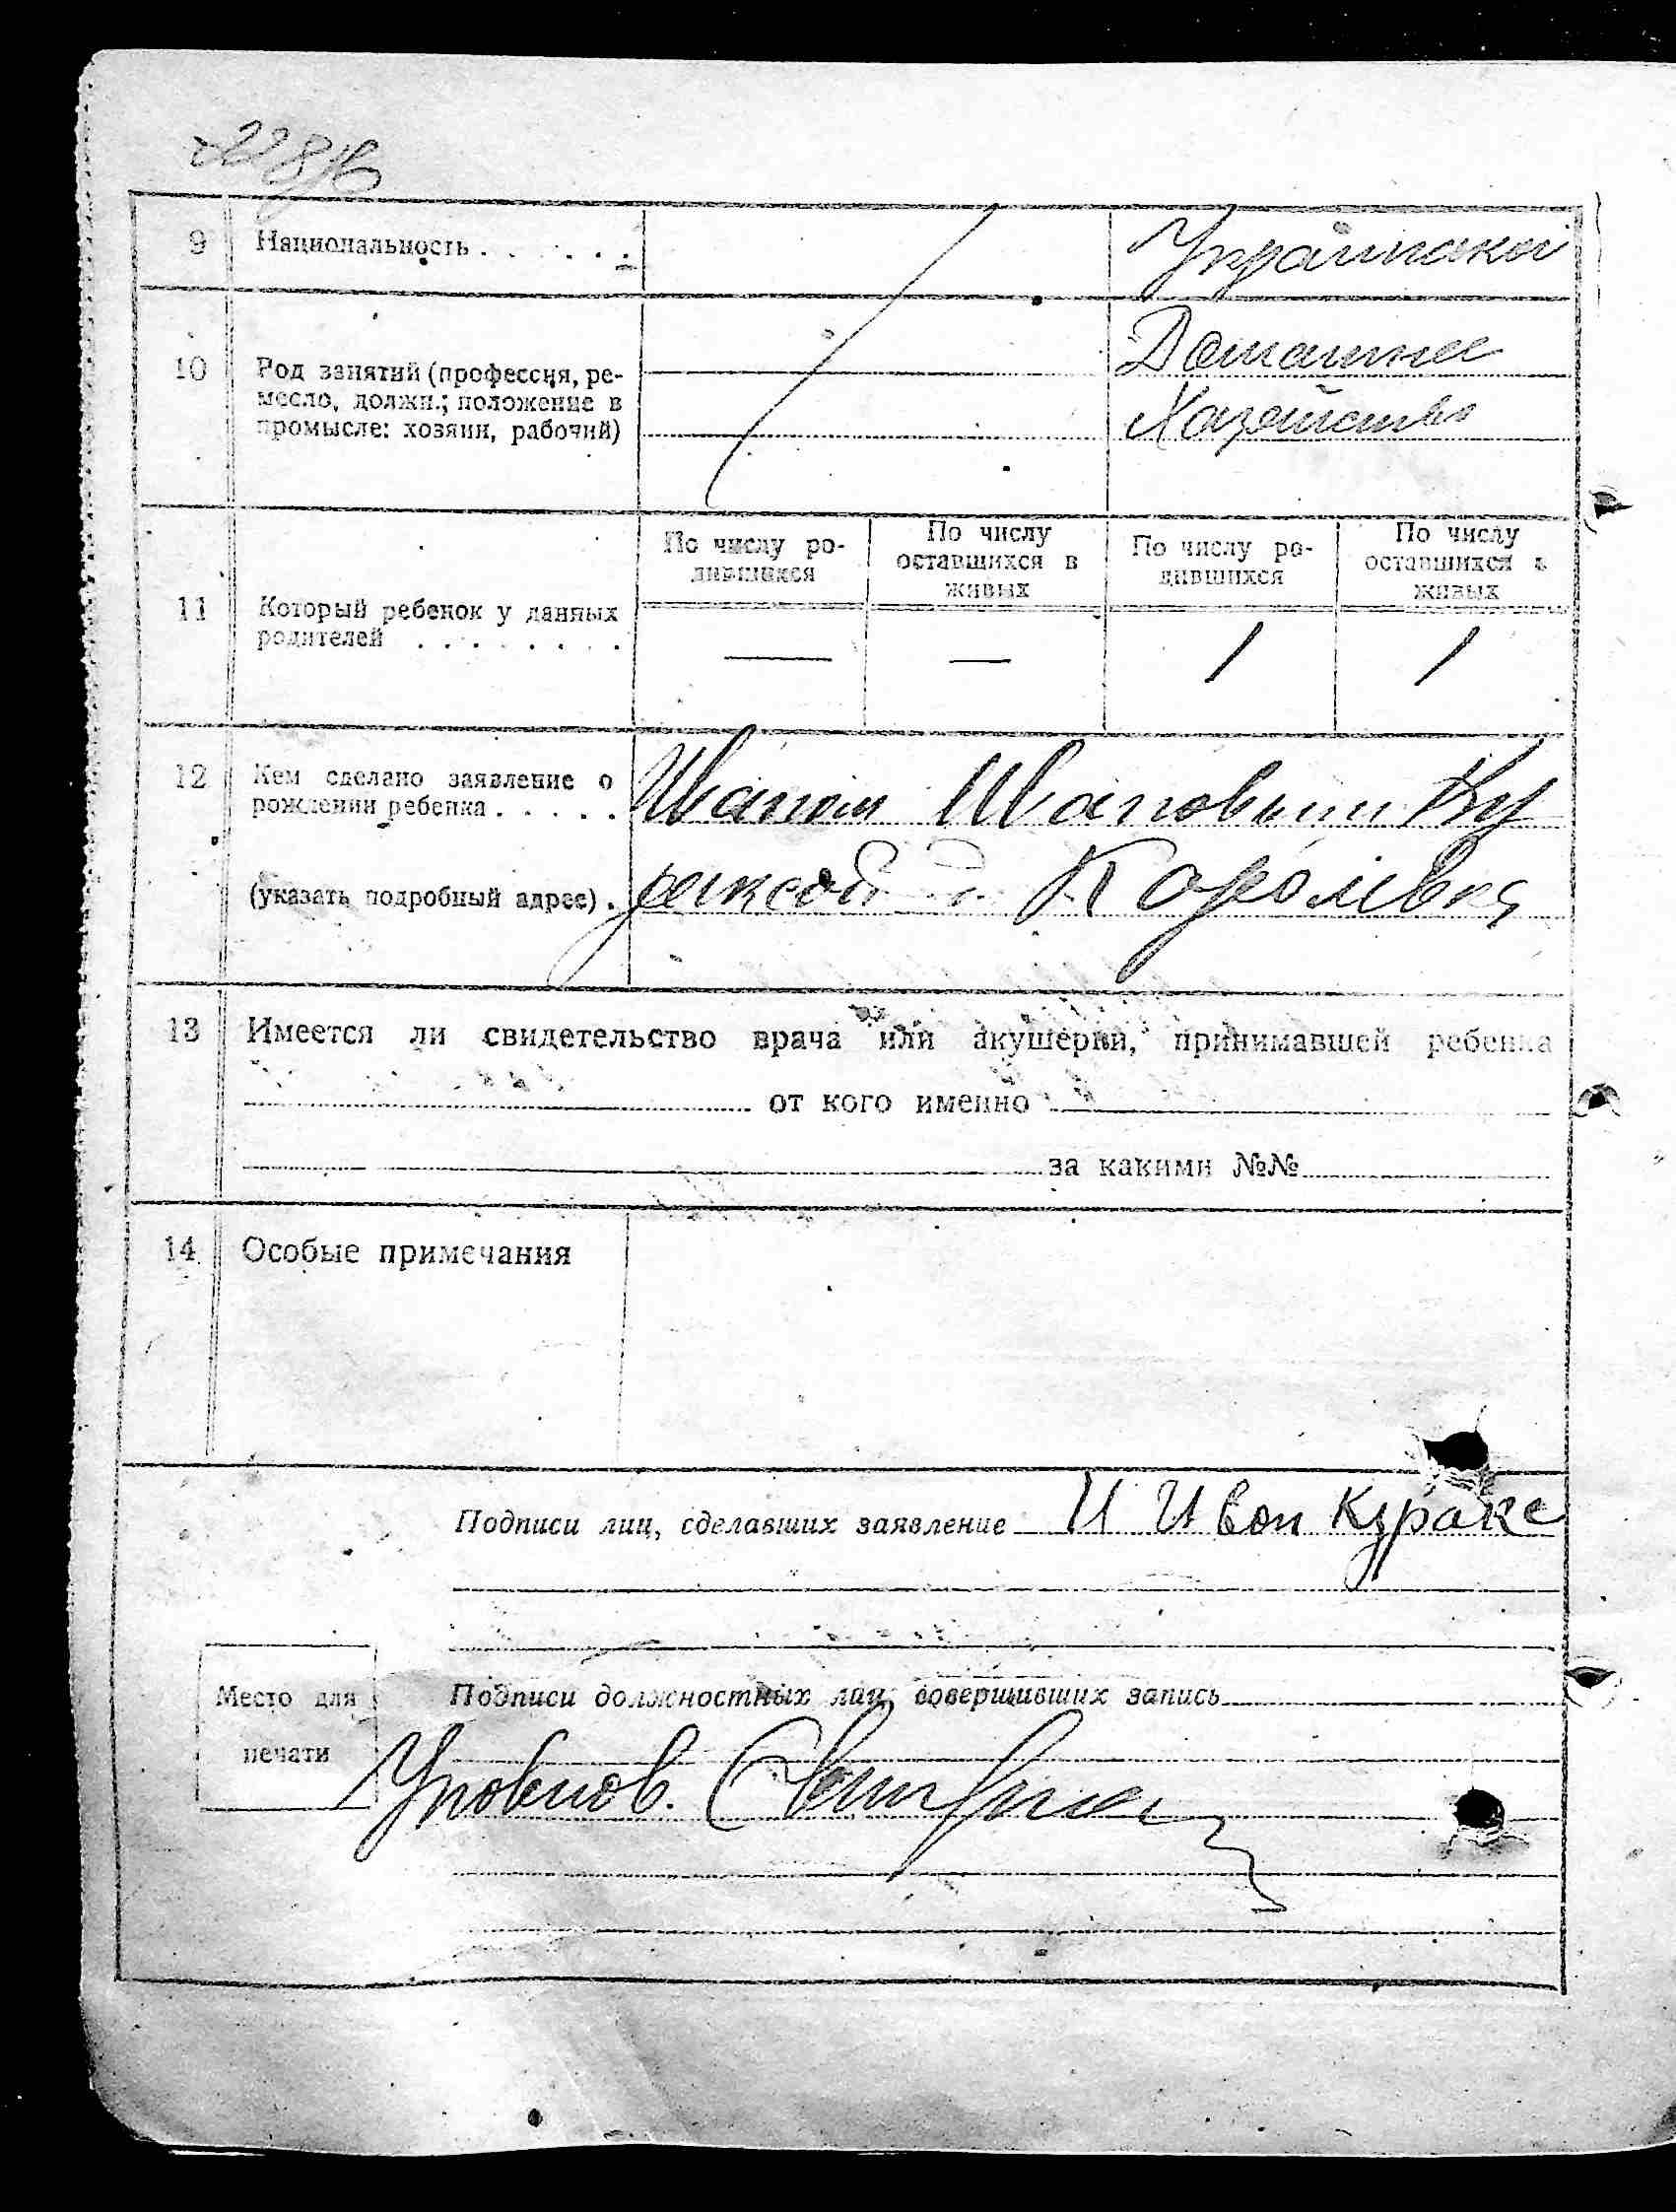 9 Национальность . . . . . .
10 Род занятий (профессия, ре-
месло, должн.; положение в
промысле: хозяин, рабочий)
Домашнее
Хазяйство
11 Который ребенок у данных
родителей . . . . . . . .
По числу ро-
дившихся
По числу
оставшихся в
живых
По числу ро-
дившихся
По числу
оставшихся в
живых
— — 1 1
12 Кем сделано заявление о
рождении ребенка . . . . .
(указать подробный адрес) .
Иваном Ивановым Ку
Королевка
13 Имеется ли свидетельство врача или акушерки, принимавшей ребенка
от кого именно
за какими №№
14 Особые примечания
Подписи лиц, сделавших заявление И Ивон
Место для
печати
Подписи должностных лиц, совершивших запись